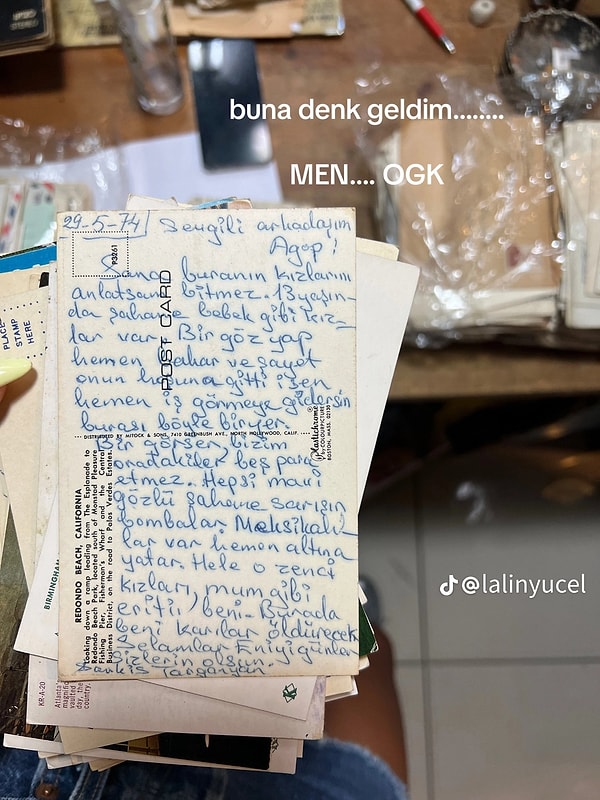 buna denk geldim........
MEN.... OGK
29-5-74 Sevgili arkadaşım
Agop!
P3261
Sana buranın kızlarını
anlatsam bitmez. 13 yaşın-
da şahane bebek gibi kız-
lar var. Bir göz yap
hemen bakar ve şayet
onun hoşuna gitti isen
hemen iş görmeye gidersin
burası böyle bir yer.
Bir görsen, bizim
oradakiler beş para
etmez. Hepsi mavi
gözlü şahane sarışın
bombalar. Meksikalı-
lar var hemen altına
yatar. Hele o zenci
kızları, mum gibi
eritir, beni. Burada
beni karılar öldürecek
Selamlar En iyi günler
sizlerin olsun.
Sarkis
POST CARD
PLACE
STAMP
HERE
DISTRIBUTED BY MITOCK & SONS, 7410 GREENBUSH AVE., NORTH HOLLYWOOD, CALIF.
Plastichrome
BY COLOURPICTURE
BOSTON, MASS. 02130
REDONDO BEACH, CALIFORNIA
Looking down a ramp leading from The Esplanade to
Redondo Beach Park, located south of Monstad Pleasure
Fishing Pier, Fisherman's Wharf and the Central
Business District, on the road to Palos Verdes Estates.
BIRMINGHAM
KR-A-20
Atlanta's
magnific
vaulted
day, the
country.
K
STEREO
@lalinyucel